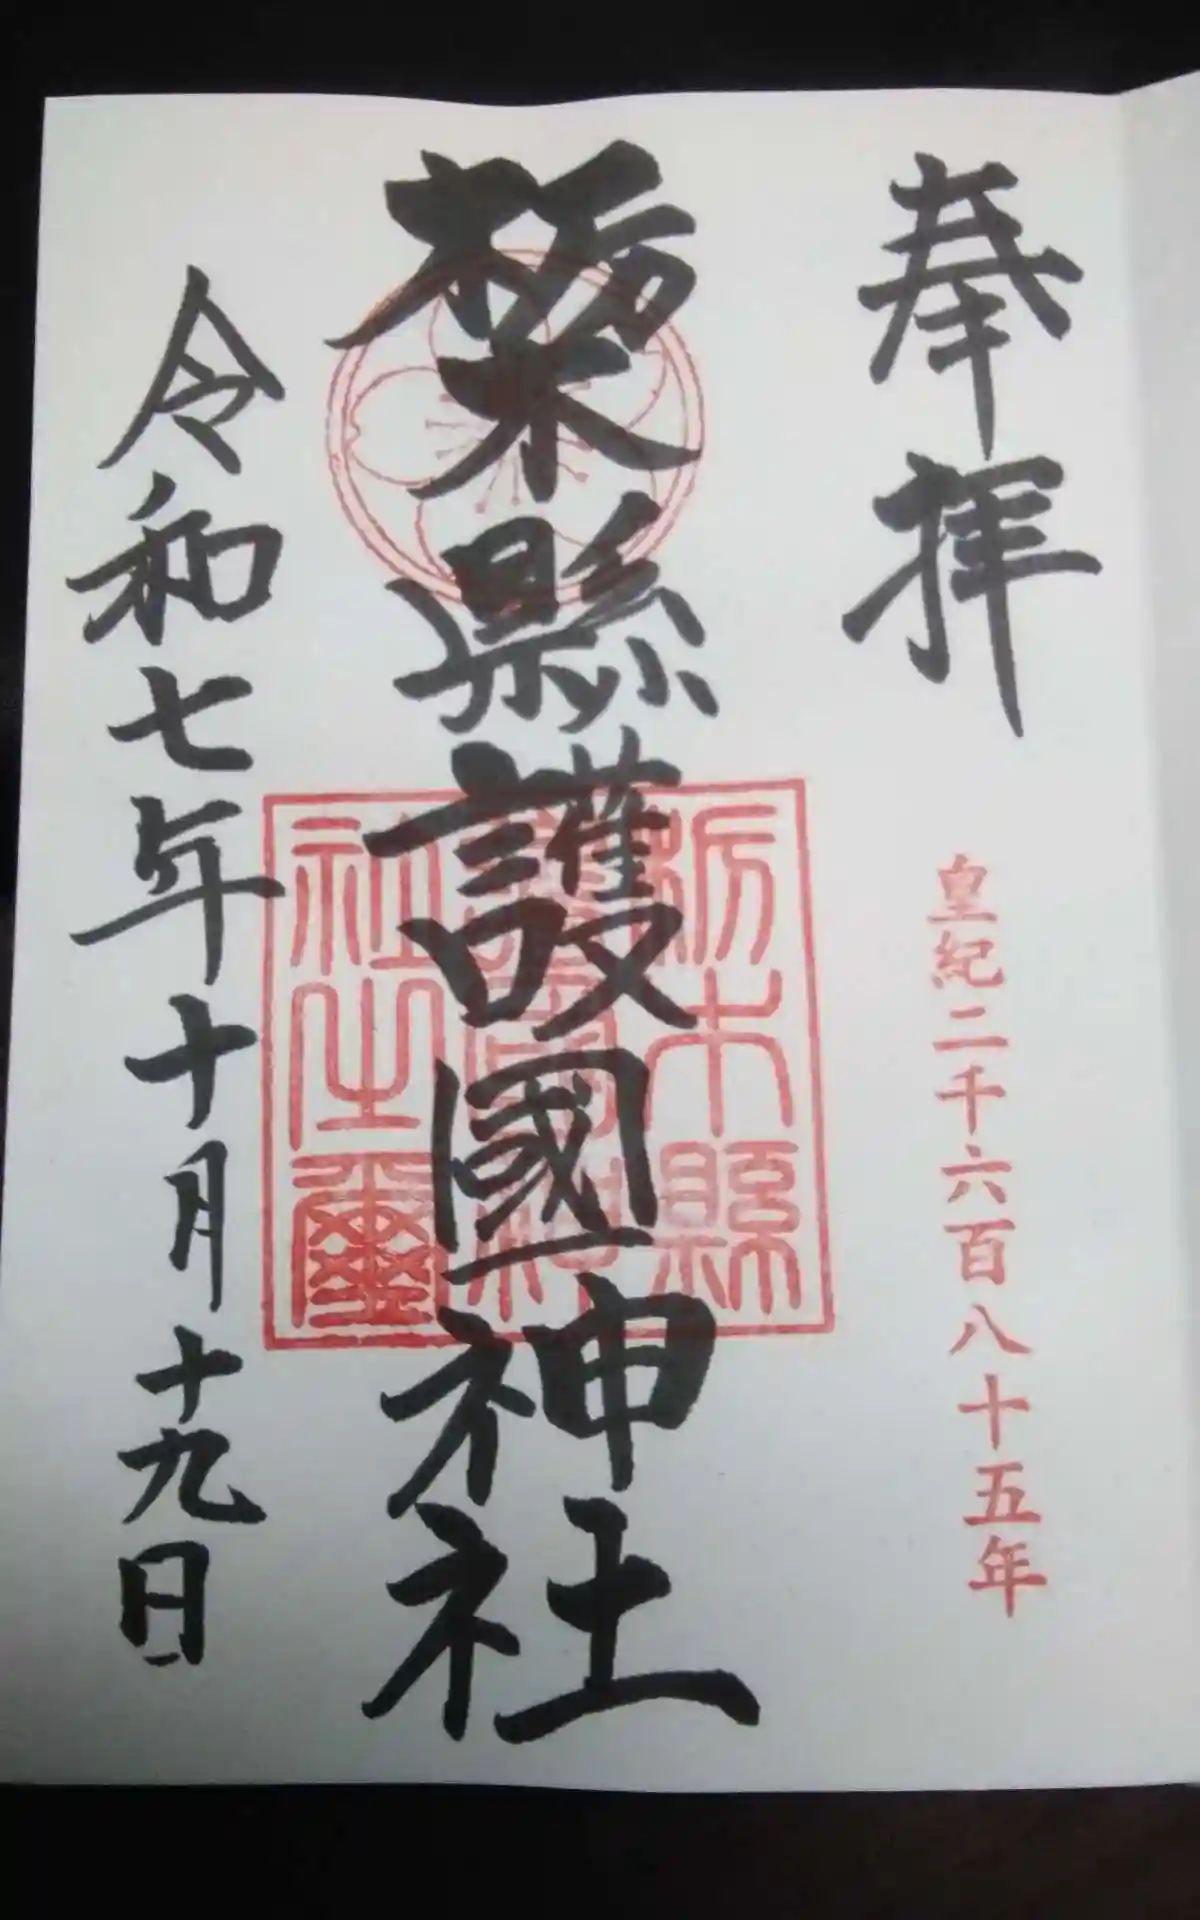 奉拝
皇紀二千六百八十五年
栃木縣護國神社
栃木縣
護國神
社之璽
令和七年十月十九日